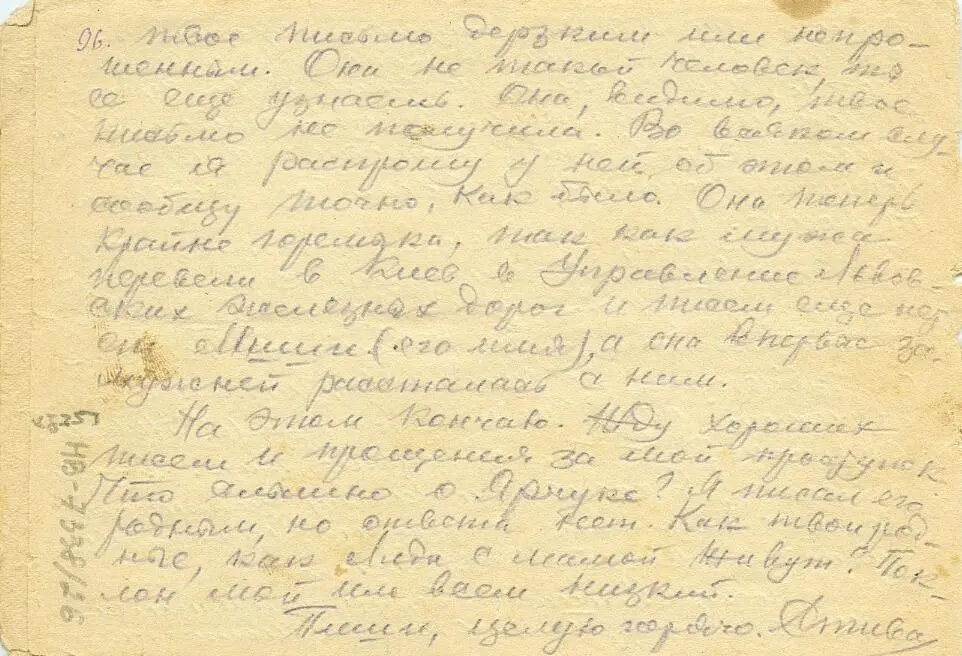 96. твое письмо дерзким или непро-
шенным. Она не такой человек, ты
ее еще узнаешь. Она, видимо, твое
письмо не получила. Во всяком слу-
чае я распрошу у ней об этом и
сообщу точно, как было. Она теперь
крайне горемыка, так как мужа
перевели в Киев в Управление Львов-
ских железных дорог и писем еще нет
от Миши (его имя), а она впервые за-
мужней рассталась с ним.
На этом кончаю. Жду хороших
писем и прощения за мой проступок
Что слышно о Ярчуке? Я писал его
родным, но ответа нет. Как твои род-
ные, как Лида с мамой живут? Пок-
лон мой им всем низкий.
Пиши, целую горячо.